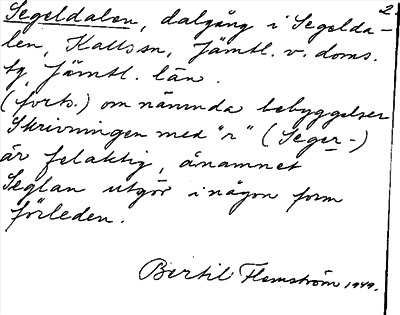 2.
Segeldalen, dalgång i Segelda-
len, Kallssn, Jämtl. v. doms.
tg, Jämtl. län.
(forts.) omnämnda bebyggelser
Skrivningen med "r" (Seger-)
är felaktig, ånamnet
Seglan utgör i någon form
förleden.
Bertil Flemström 1949.